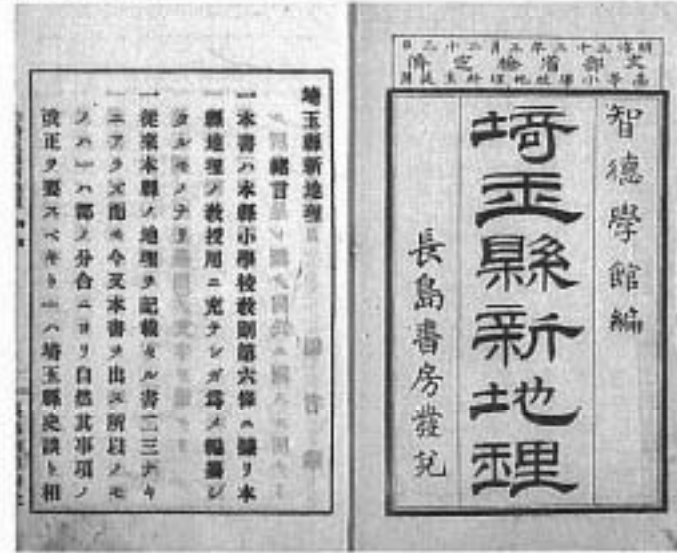 文部省檢定濟
高等小學校地理科生徒用
智德學館編
埼玉縣新地理
長島書房發兌
埼玉縣新地理
緒言
一本書ハ本縣小學校教則第六條ニ據リ本
縣地理ノ教授用ニ充テンガ爲メ編纂シ
タルモノナリ
一從來本縣ノ地理ヲ記載セル書二三ナキ
ニアラズ而モ今又本書ヲ出ス所以ノモ
ノハ一ハ郡ノ分合ニヨリ自然其事項ノ
改正ヲ要スベキト一ハ埼玉縣史談ト相